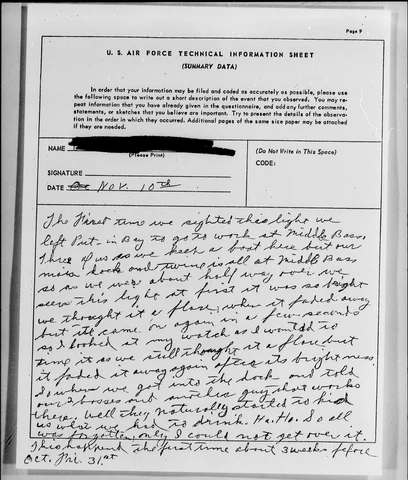 Page 9
U. S. AIR FORCE TECHNICAL INFORMATION SHEET
(SUMMARY DATA)
In order that your information may be filed and coded as accurately as possible, please use
the following space to write out a short description of the event that you observed. You may re-
peat information that you have already given in the questionnaire, and add any further comments,
statements, or sketches that you believe are important. Try to present the details of the observa-
tion in the order in which they occurred. Additional pages of the same size paper may be attached
if they are needed.
NAME
(Please Print)
(Do Not Write in This Space)
CODE:
SIGNATURE
DATE Nov. 10th
The First time we sighted this light we
left Put. in Bay to go to work at Middle Bass.
Three of us as we keep a boat here but our
main dock and twine is all at Middle Bass
so as we was about half way over we
seen this light at first it was so bright
we thought it a flare, when it faded away
but it came on again in a few seconds
so I looked at my watch as I wanted to
time it as we still thought it a flare but
it faded it away again after its brightness.
So when we got into the dock and told
our 2 bosses and another guy that works
there. Well they naturally started to kid
us what we had to drink. Ha. Ha. So all
was forgotten, only I could not get over it.
This happend the first time about 3 weeks before
Oct. Fri. 31st